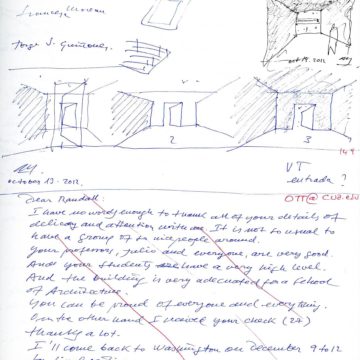 Francesc Moreau
Jorge S. Quinones.
oct 19. 2012
2
3
149
october 13. 2012.
VT
entrada ?
OTT@CUA.edu
Dear Randall:
I have no words enough to thank all of your details of
delicacy and attention with me. It is not so usual to
have a group of people around.
Your professors, Julio and everyone, are very good.
And your students have a very high level.
And the building is very adecuated for a School
of Architecture.
You can be proud of everyone and everything.
On the other hand I received your check (24)
thanks a lot.
I'll come back to Washington on December 9 to 12